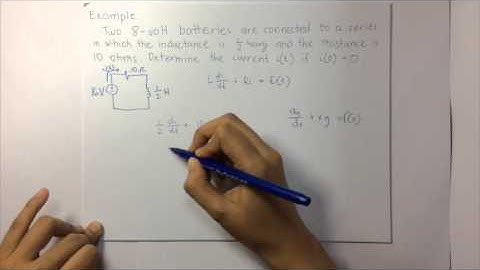 Example:
Two 8-volt batteries are connected to a series
in which the inductance is 1/2 henry and the resistance is
10 ohms. Determine the current i(t) if i(0) = 0
10 Ω
L di/dt + Ri = E(t)
16V
1/2 H
1/2 di/dt +
+ xy = f(x)